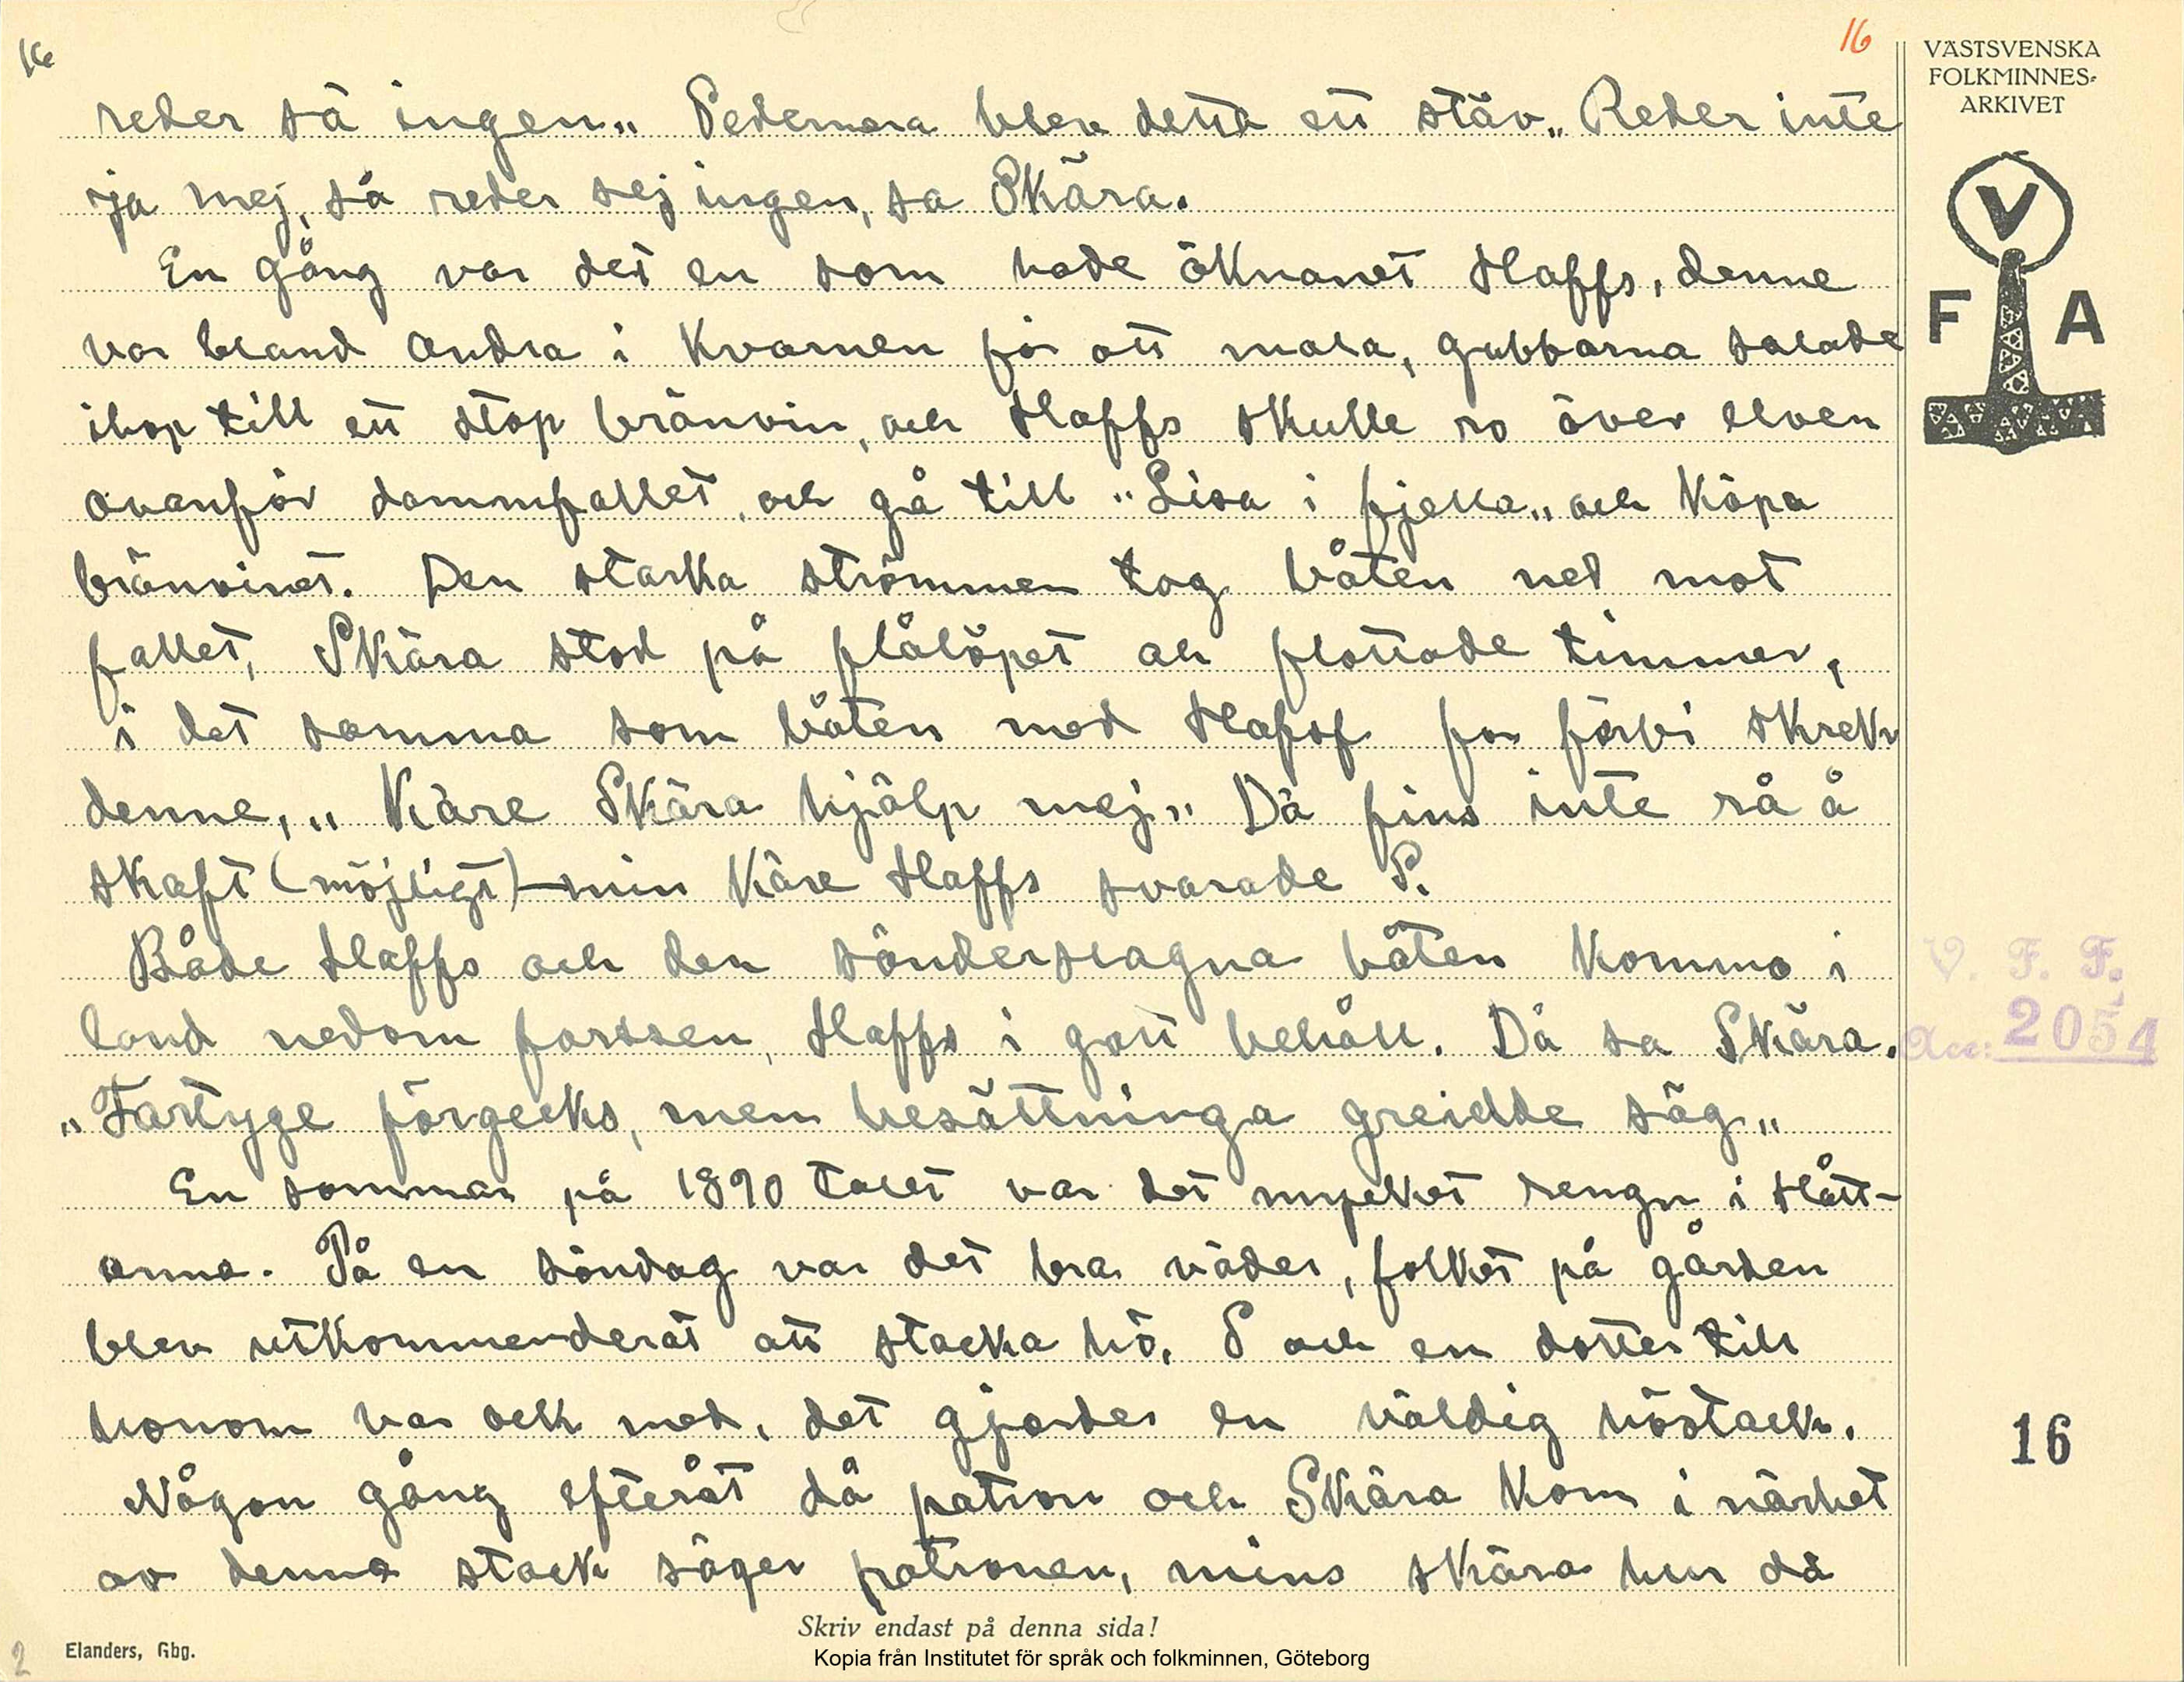 16
16
VÄSTSVENSKA
FOLKMINNES-
ARKIVET
V
F A
reder så ingen„ Sedermera blev detta ett stäv „Reder inte
ja mej, så reder sej ingen, sa Skära.
En gång var det en som hade öknanet Haffs, denne
var bland andra i kvarnen för att mala, gubbarna salade
ihop till ett stop bränvin, och Haffs skulle ro över elven
ovanför dammfallet, och gå till „Lisa i fjella„ och köpa
bränvinet. Den starka strömmen tog båten ned mot
fallet, Skära stod på flålöpet och flottade timmer,
i det samma som båten med Hafsf for förbi skrek
denne, „Käre Skära hjälp mej„ Dä fins inte rå å
skaft (möjligt) min käre Haffs svarade S.
Både Haffs och den sönderslagna båten kommo i
land nedom forssen, Haffs i gott behåll. Då sa Skära.
„Fartyge förgecks, men besättninga greidde säg„
En sommar på 1890 talet var det mycket rengn i Hått-
anna. På en söndag var det bra väder, folket på gården
blev utkommenderat att stacka hö. S och en dotter till
honom var ock med, det gjordes en väldig höstack.
Någon gång efteråt då patron och Skära kom i närhet
av denna stack säger patronen, mins skära hur då
V. F. F.
Acc: 2054
16
Skriv endast på denna sida!
2
Elanders, Gbg.
Kopia från Institutet för språk och folkminnen, Göteborg